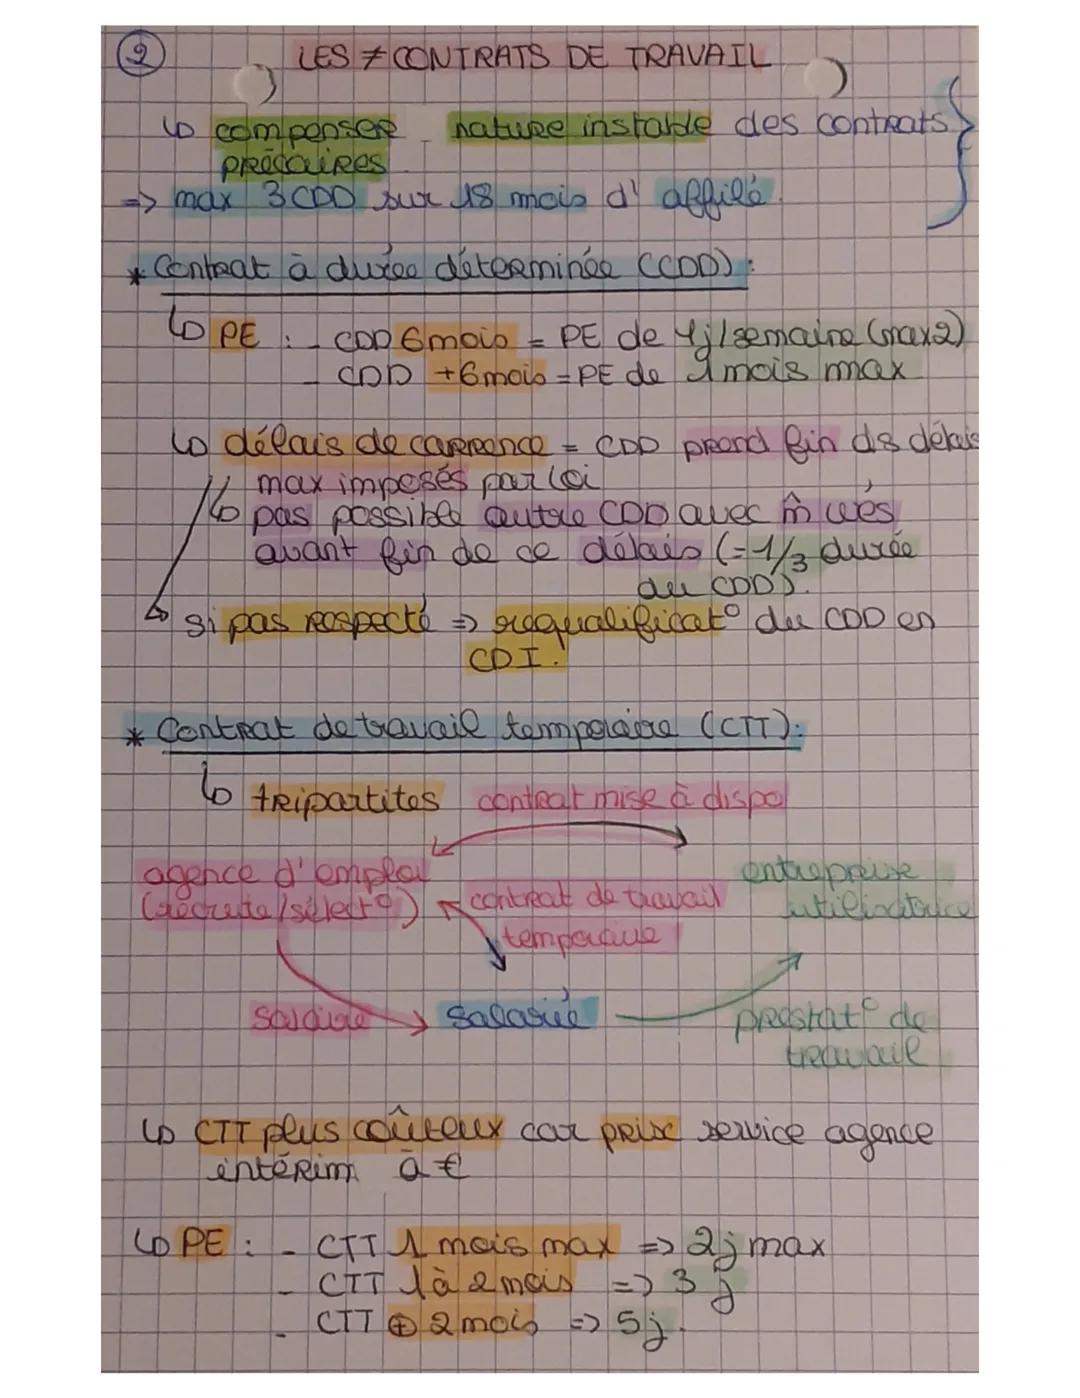 2
LES ≠ CONTRATS DE TRAVAIL
↳ compenser nature instable des contrats
précaires
=> max 3 CDD sur 18 mois d' affilé.
* Contrat à durée déterminée (CDD) :
↳ PE : - CDD 6 mois = PE de 1j/semaine (max 2)
- CDD +6 mois = PE de 1 mois max
↳ délais de carrence = CDD prend fin ds délais
max imposés par loi
↳ pas possible autre CDD avec m̂
avant fin de ce délais (= 1/3 durée
du CDD).
↳ si pas respecté => requalificat° du CDD en
CDI.
* Contrat de travail temporaire (CTT) :
↳ tripartites contrat mise à dispo
agence d'emploi entreprise
(recrute/sélect°) contrat de travail utilisatrice
temporaire
salaire salarié prestat° de
travail
↳ CTT plus coûteux car prix service agence
intérim à €
↳ PE : - CTT 1 mois max => 2j max
- CTT 1 à 2 mois => 3 j
- CTT ⊕ 2 mois => 5j.